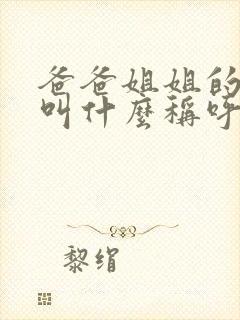 爸爸姐姐的
叫什麼稱呼
黎绢